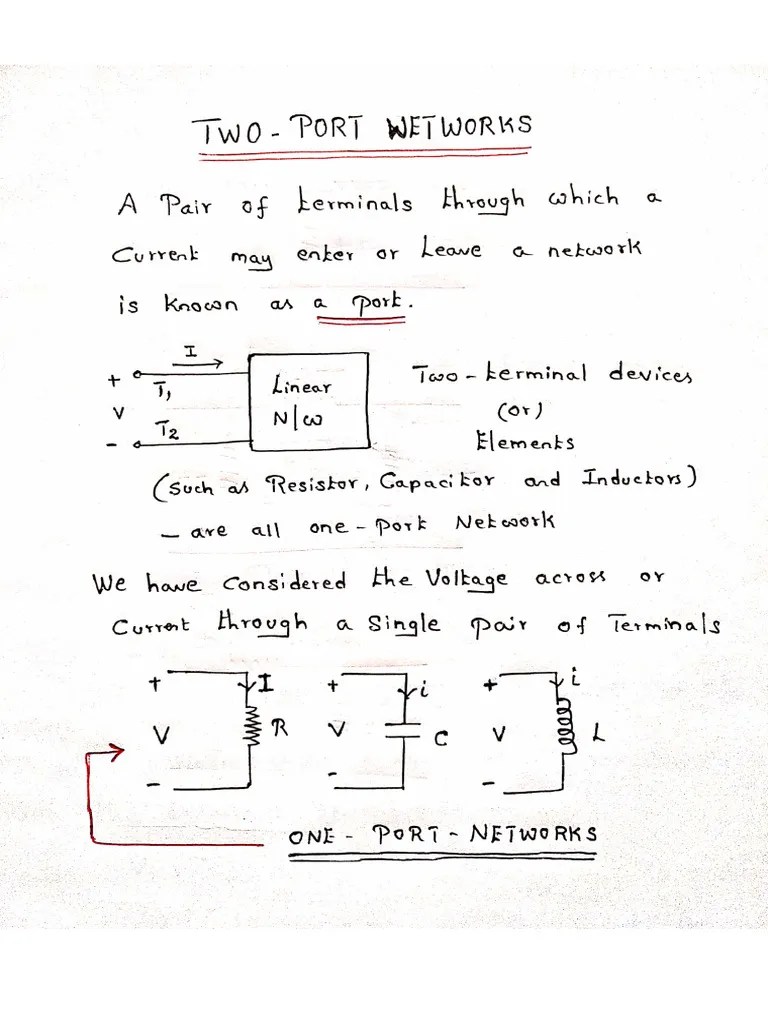 TWO-PORT NETWORKS
A Pair of terminals through which a
Current may enter or Leave a network
is Known as a port.
I
+ T1
V
- T2
Linear
N/w
Two-terminal devices
(or)
Elements
(Such as Resistor, Capacitor and Inductors)
– are all one-port Network
We have Considered the Voltage across or
Current through a Single pair of Terminals
+ I + i + i
V R V C V L
- - -
ONE-PORT-NETWORKS